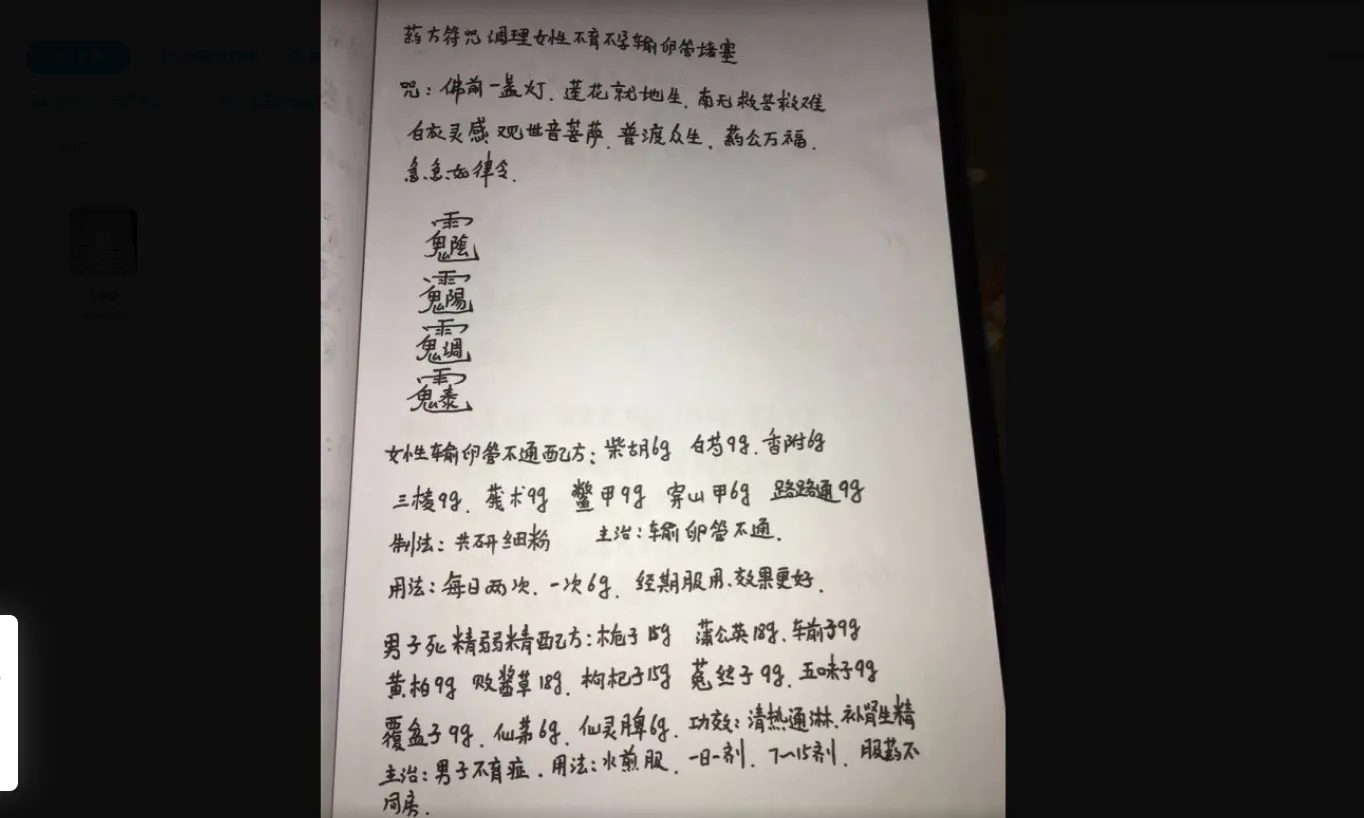 药方符咒 调理女性不育不孕输卵管堵塞
咒：佛前一盏灯．莲花就地生．南无救苦救难
白衣灵感 观世音菩萨．普渡众生．药么万福．
急急如律令．
女性输卵管不通配方：柴胡6g 白芍9g．香附6g
三棱9g．莪术9g 鳖甲9g 穿山甲6g 路路通9g
制法：共研细粉 主治：输卵管不通．
用法：每日两次．一次6g．经期服用．效果更好．
男子死精弱精配方：栀子15g 蒲公英18g．车前子9g
黄柏9g 败酱草18g．枸杞子15g 菟丝子9g．五味子9g
覆盆子9g．仙茅6g．仙灵脾6g．功效：清热通淋．补肾生精
主治：男子不育症．用法：水煎服．一日一剂．7~15剂．服药不
同房．